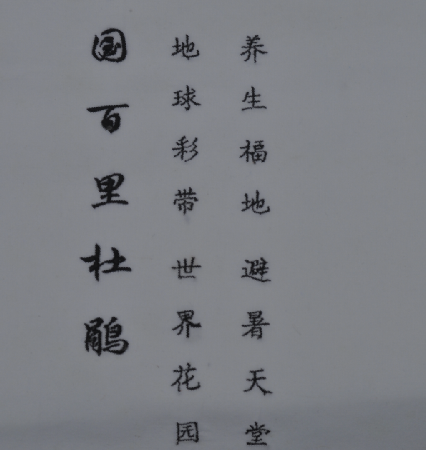 养生福地避暑天堂
地球彩带世界花园
国百里杜鹃